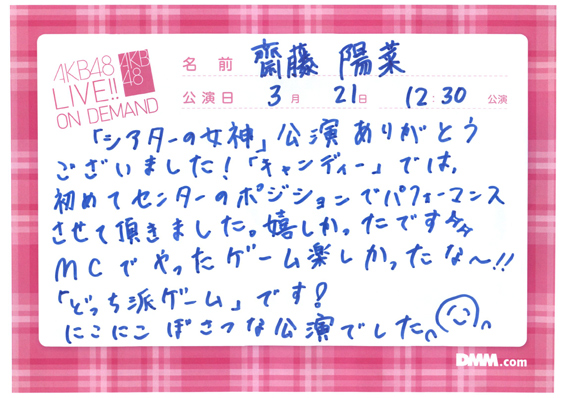 AKB48
LIVE!!
ON DEMAND
AKB
48
名前 齋藤 陽菜
公演日 3月 21日 12:30 公演
「シアターの女神」公演ありがとう
ございました!「キャンディー」では、
初めてセンターのポジションでパフォーマンス
させて頂きました。嬉しかったです
MCでやったゲーム楽しかったな〜!!
「どっち派ゲーム」です!
にこにこ ぽさつな公演でした
DMM.com